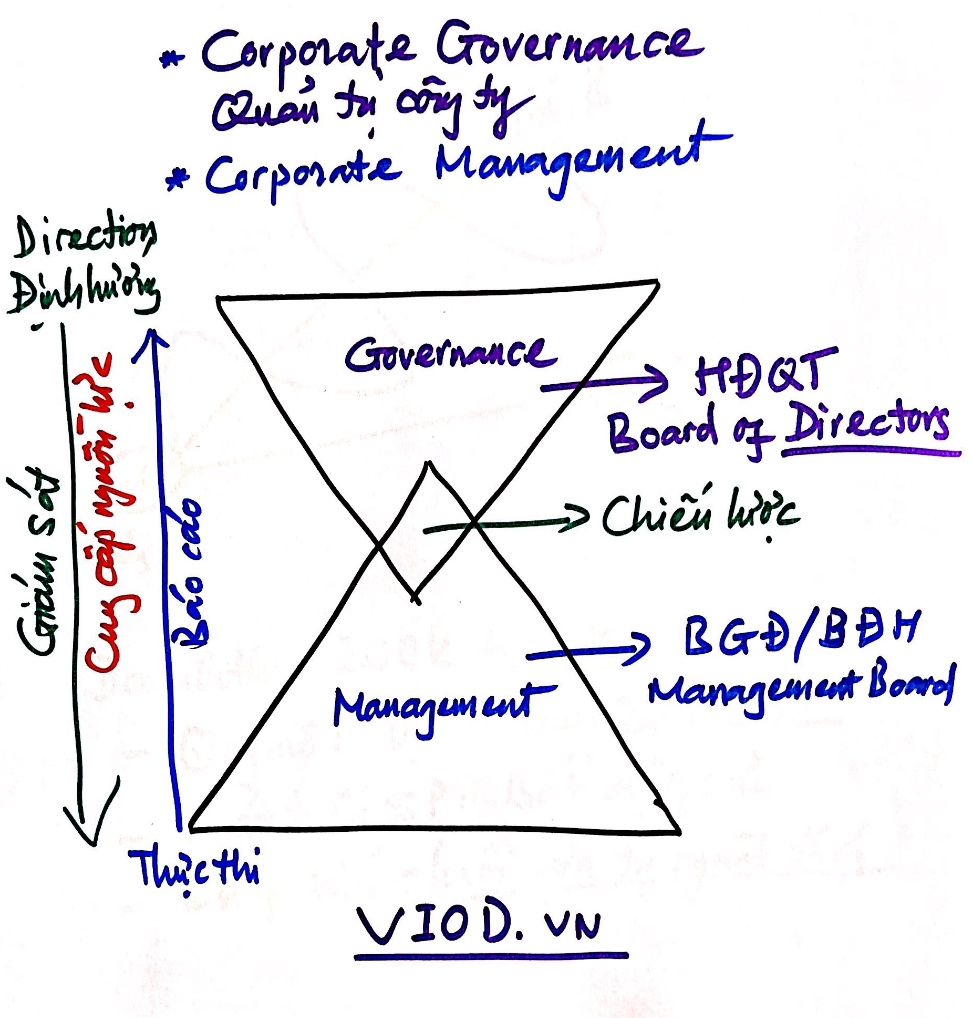 * Corporate Governance
Quản trị công ty
* Corporate Management
Direction
Định hướng
Giám sát
Cung cấp nguồn lực
Báo cáo
Thực thi
Governance
HĐQT
Board of Directors
Chiến lược
Management
BGĐ/BĐH
Management Board
VIOD.VN